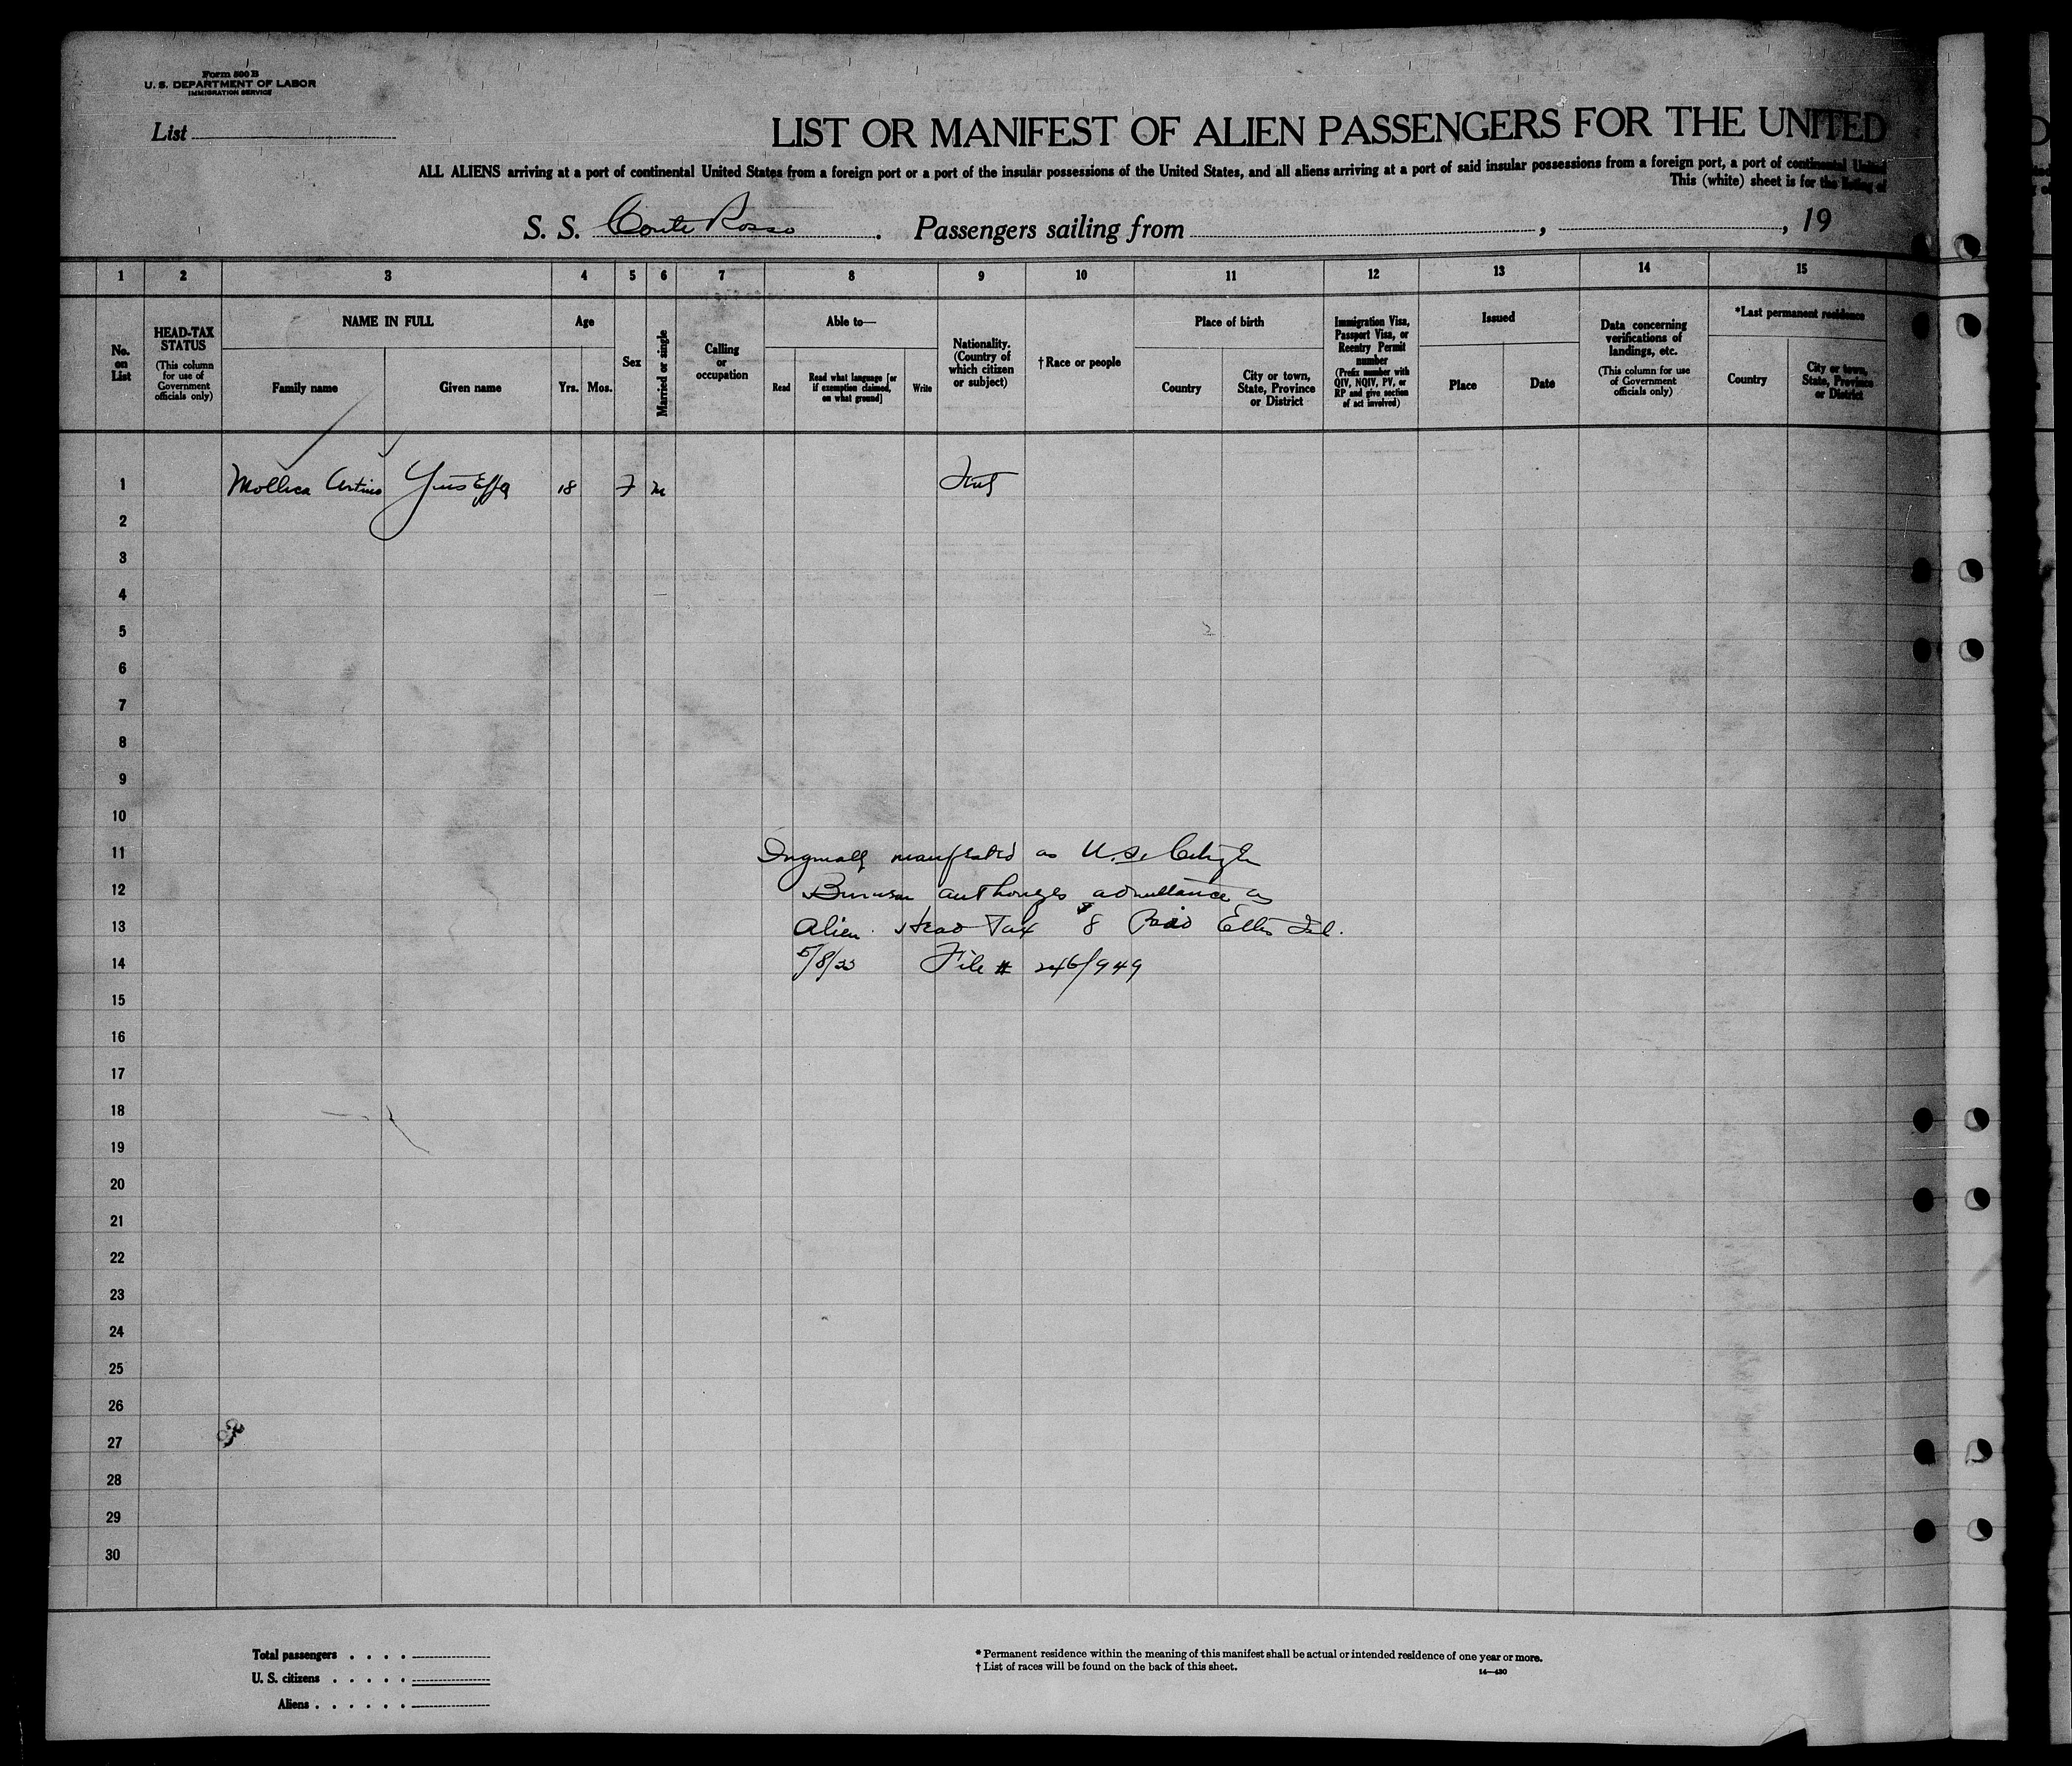 Form 500 B
U. S. DEPARTMENT OF LABOR
IMMIGRATION SERVICE
List
LIST OR MANIFEST OF ALIEN PASSENGERS FOR THE UNITED
ALL ALIENS arriving at a port of continental United States from a foreign port or a port of the insular possessions of the United States, and all aliens arriving at a port of said insular possessions from a foreign port, a port of continental United
This (white) sheet is for the listing of
S. S. Conte Rosso. Passengers sailing from , , 19
1 2 3 4 5 6 7 8 9 10 11 12 13 14 15
No. on List
HEAD-TAX STATUS
(This column for use of Government officials only)
NAME IN FULL
Family name
Given name
Age
Yrs.
Mos.
Sex
Married or single
Calling or occupation
Able to—
Read
Read what language [or if exemption claimed, on what ground]
Write
Nationality. (Country of which citizen or subject)
†Race or people
Place of birth
Country
City or town, State, Province or District
Immigration Visa, Passport Visa, or Reentry Permit number
(Prefix number with QIV, NQIV, PV, or RP and give section of act involved)
Issued
Place
Date
Data concerning verifications of landings, etc.
(This column for use of Government officials only)
*Last permanent residence
Country
City or town, State, Province or District
1 Mollica 18 F M
2
3
4
5
6
7
8
9
10
11 manifested as U.S. Citizen
12 Bureau authorizes admittance as
13 Alien. Head Tax $8 Paid Ellis Isl.
14 File # 246/949
15
16
17
18
19
20
21
22
23
24
25
26
27
28
29
30
Total passengers . . . .
U. S. citizens . . . . .
Aliens . . . . . .
* Permanent residence within the meaning of this manifest shall be actual or intended residence of one year or more.
† List of races will be found on the back of this sheet.
14—430